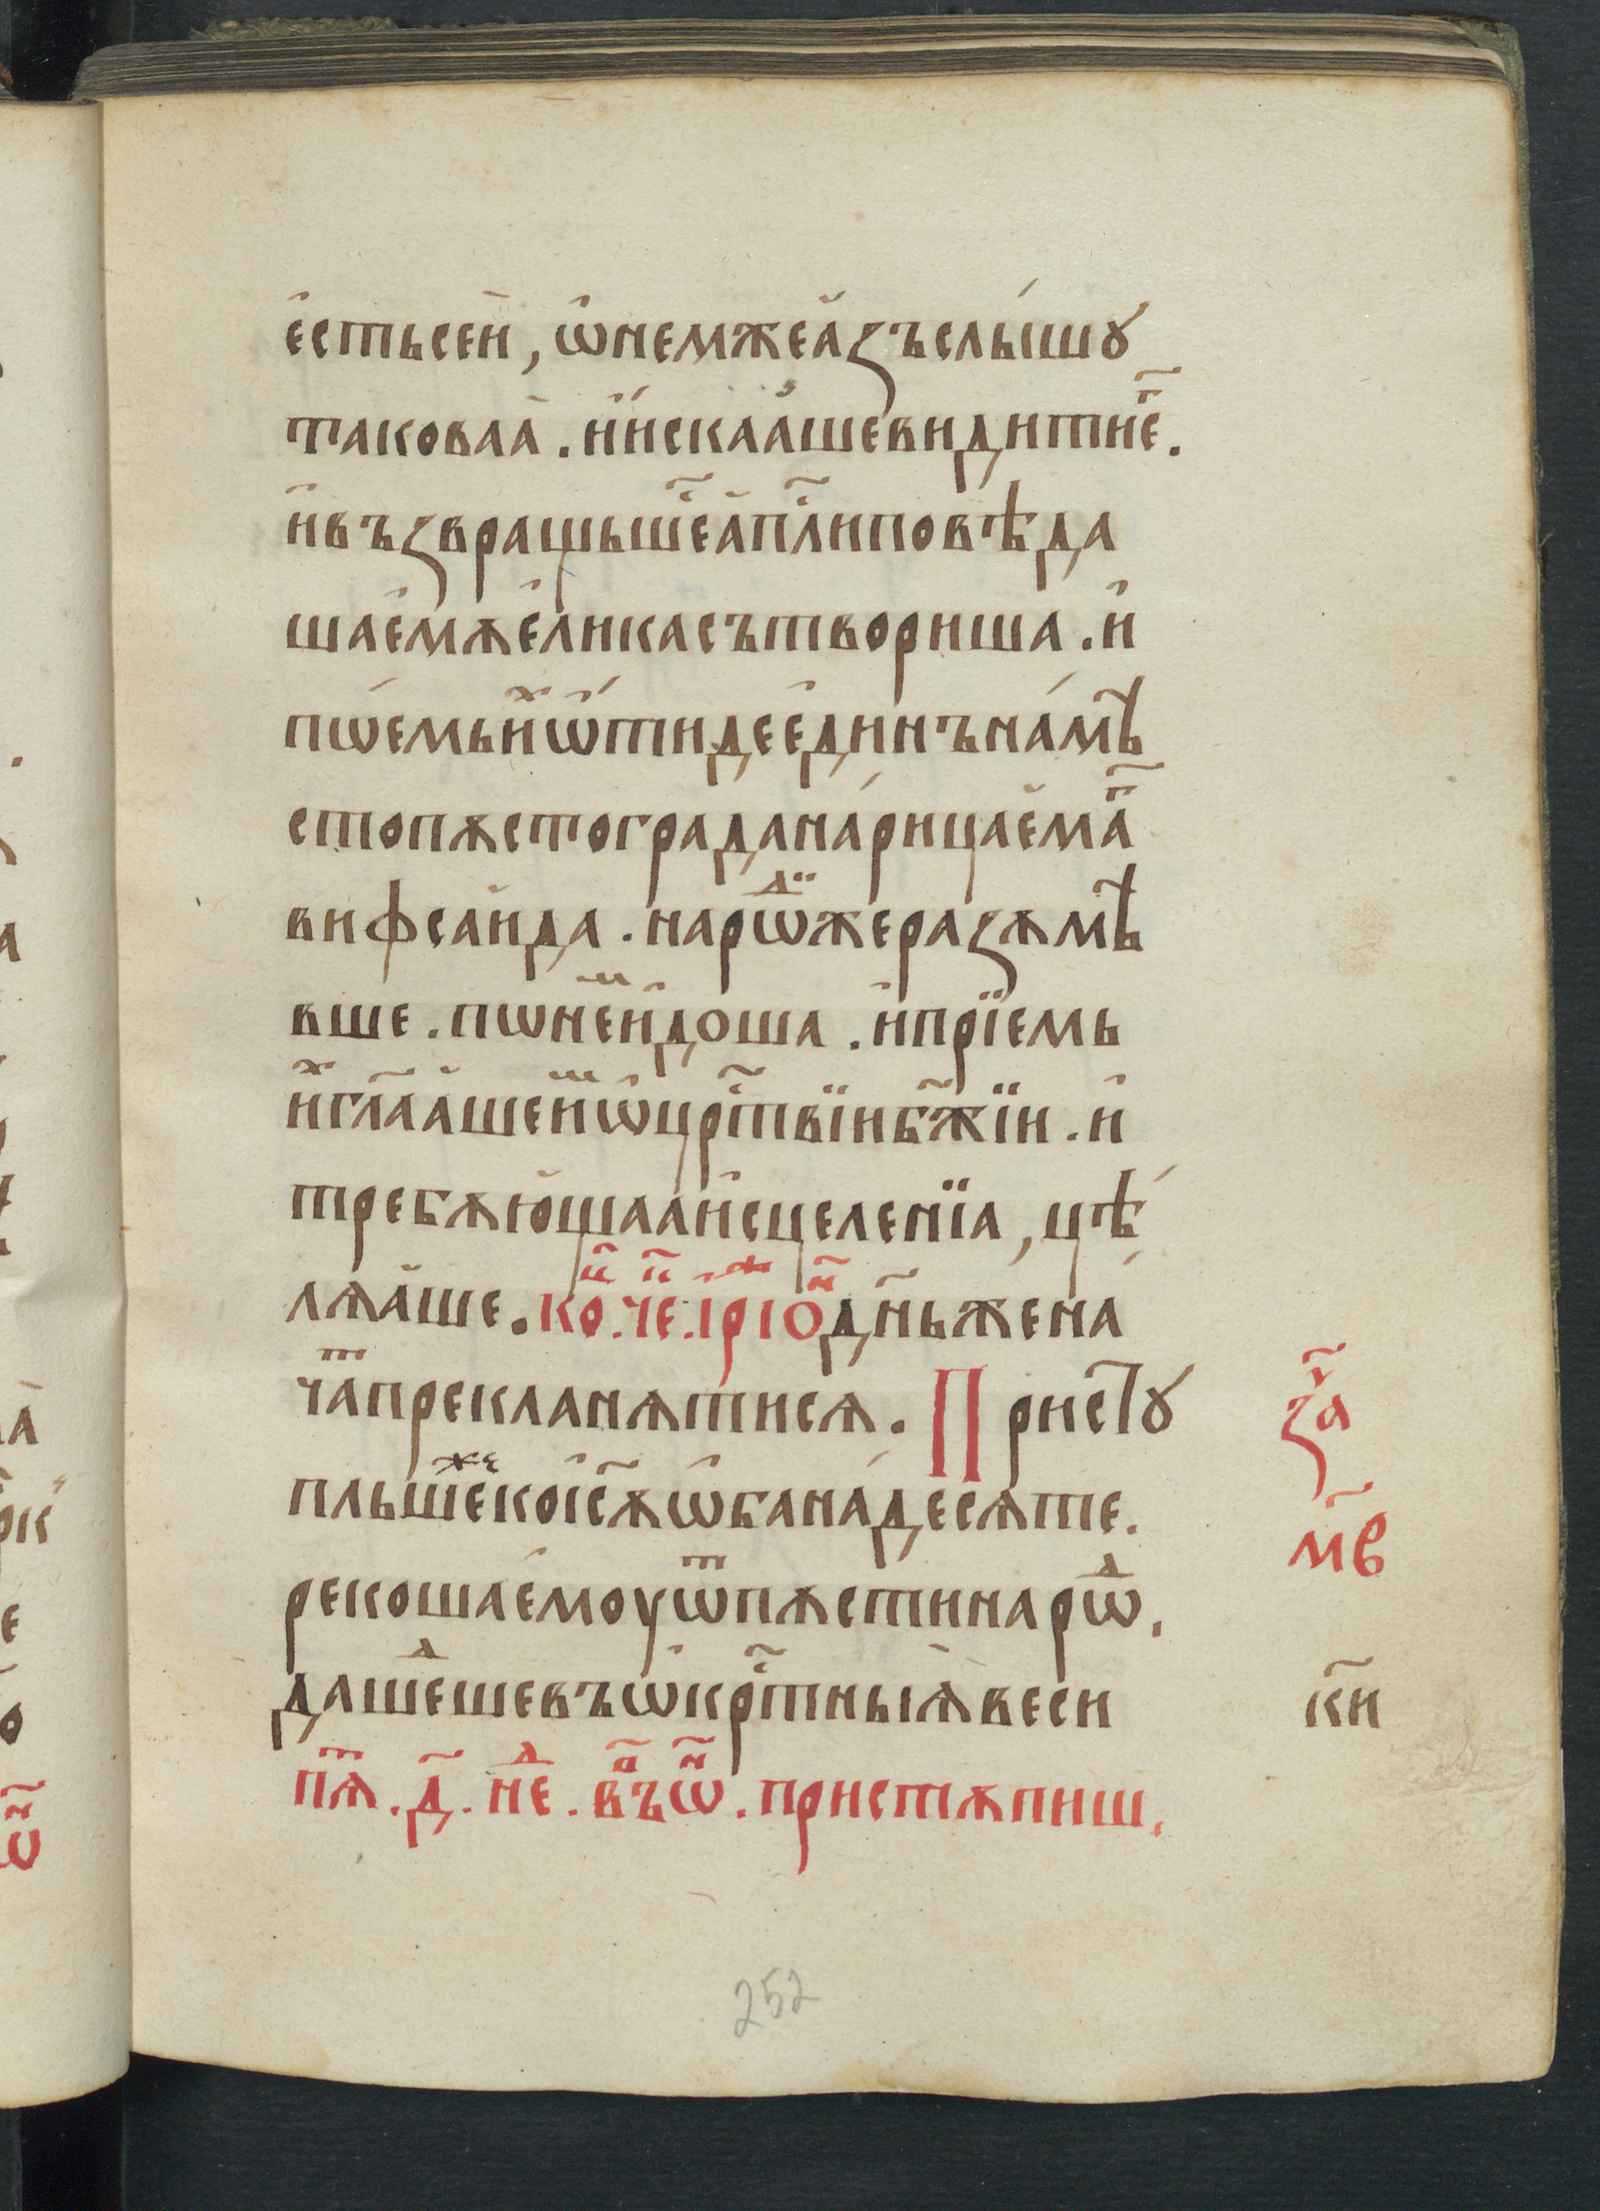 є҆стьсе́и, ѡ҆немжеа҆зъслы́шꙋ
таковаа҆. и҆и҆скаа҆шевидитиⷭ҇е.
и҆възвращьшеⷭ҇а҆пⷭ҇липовѣда
шає҆мѫє҆ликасътвориша. и҆
пѡе́мьиⷯѡ҆тидеє҆динъна́мѣ
стопѫстоградана́рицає҆маⷫ҇
вифсаида. нарѡⷣжеразѫмѣ
вше. пѡнеⷨи҆доша. и҆прїемь
иⷯгл҃аа҆шеиⷨѡ҆црⷭ҇твїиб҃жїи. и҆
требѫю҆щааи҆сцеленїа, цѣ
лѧа҆ше. коⷩ҇.чеⷮ.іріоⷩ҇дн҃ьжена
чаⷮпрекланѧтисѧ. Пристꙋ
пльшеⷤкоі҆с҃ѫѡ҆бана́десѧте.
рекошає҆моуѿпѫстинарѡⷣ.
дашеⷣшевъѡ҆крⷭ҇тныѧ҆веси
пѧⷮ.д҃.неⷣ.въⷫ҇ѡⷩ҇.пристѫпиш.
заⷱ҇
м҃в
к҃и
252